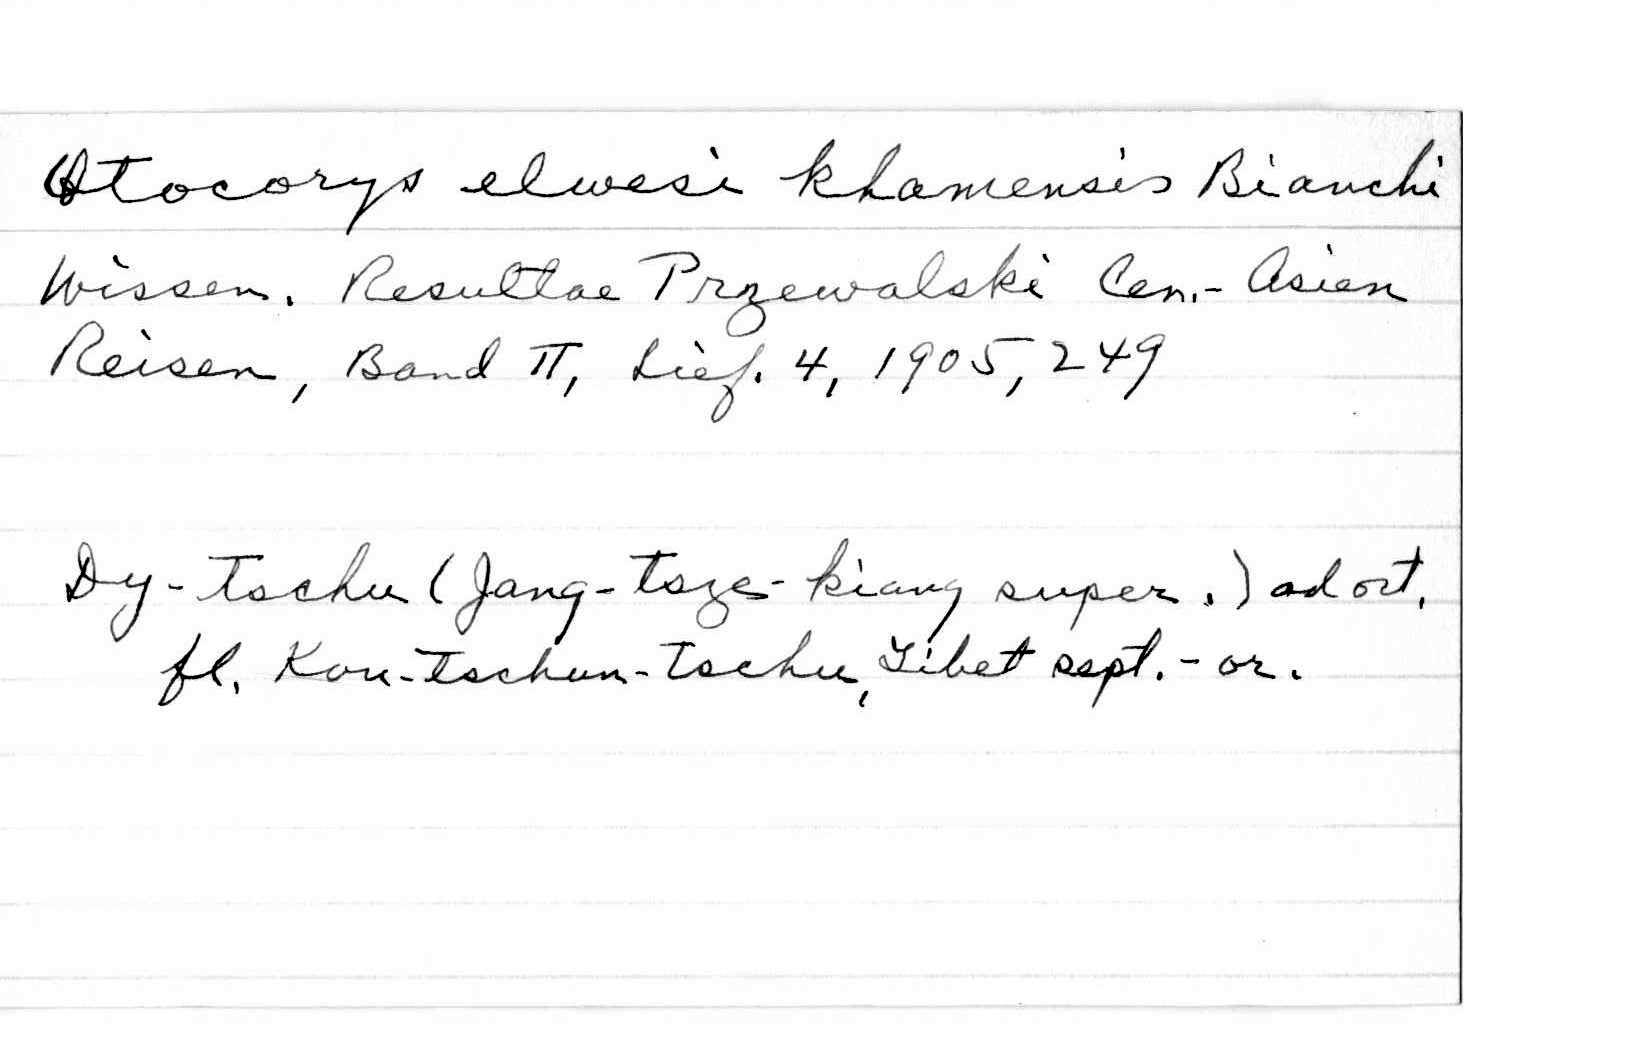 Otocorys elwesi khamensis Bianchi
Wissen. Resultae Przewalski Cen.- Asien
Reisen, Band II, Lief. 4, 1905, 249
Dy-tschu (Jang-tsze-kiang super.) ad ort.
fl. Kon-tschun-tschu, Tibet sept.-or.